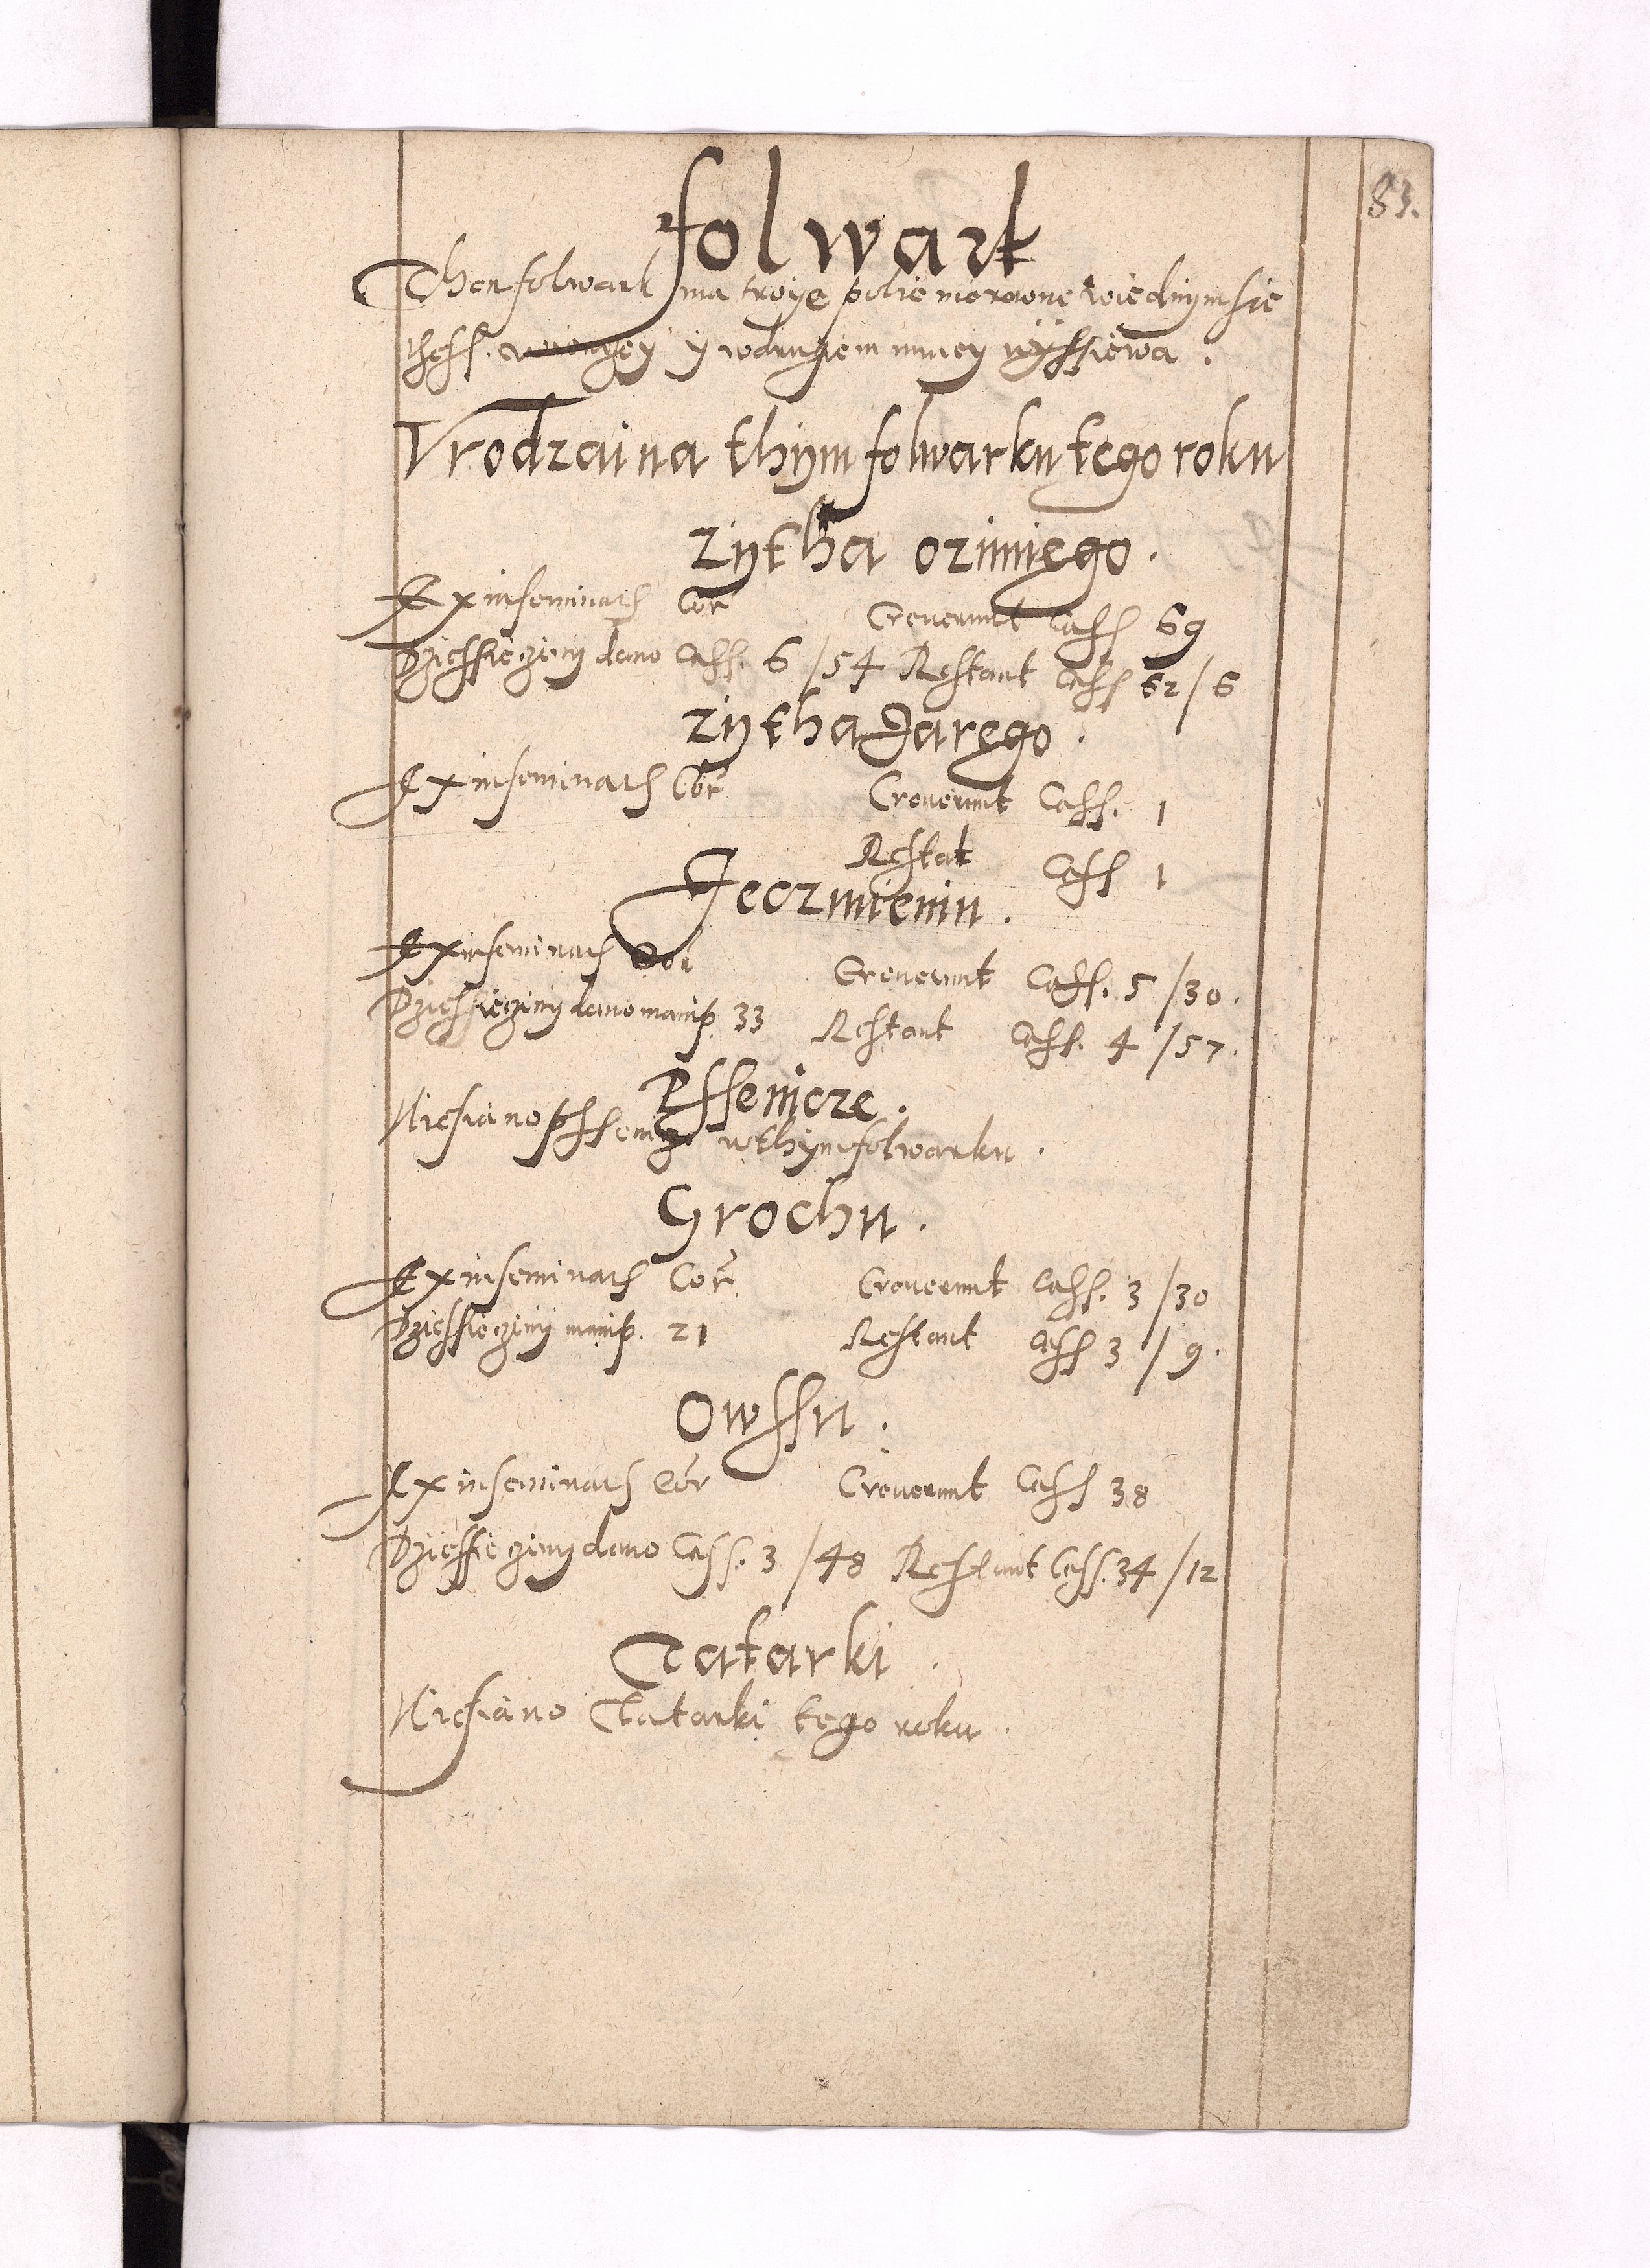 83.
folwark
Then folwark ma troye polie nierowne wiednym sie
thess. wienczey y wdrugiem mniey wyssiewa.
Vrodzai na thym folwarku tego roku
Zytha ozimiego.
Ex inseminatis Cor Creuerunt Cass 69
Dziessiecziny dano Cass. 6/54 Restant Cass 62/6
Zytha Jarego.
Ex inseminatis Cor Creuerunt Cass. 1
Restat Cass 1
Jeczmieniu.
Ex inseminatis Cor Creuerunt Cass. 5/30.
Dziessiecziny dano manip. 33 Restant Cass. 4/57.
Pssenicze.
Niesiano pssenicze wthym folwarku.
Grochu.
Ex inseminatis Cor. Creuerunt Cass. 3/30
Dziessiecziny manip. 21 Restant Cass 3/9.
Owssu.
Ex inseminatis Cor Creuerunt Cass 38
Dziessiecziny dano Cass. 3/48 Restant Cass. 34/12
Tatarki.
Niesiano Tatarki tego roku.